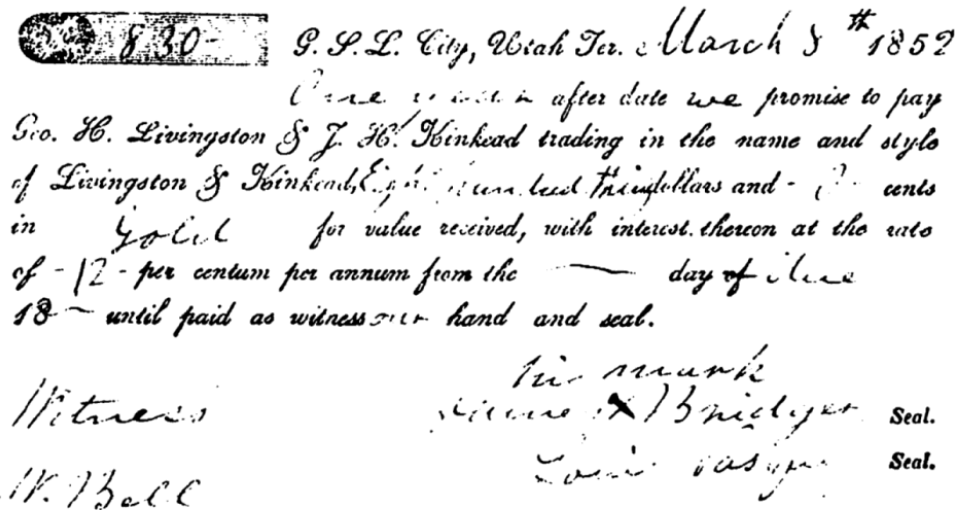 830-
G. S. L. City, Utah Ter. March 8th 1852
One after date we promise to pay
Geo. H. Livingston & J. H. Kinkead trading in the name and style
of Livingston & Kinkead, Eight hundred dollars and - 0 - cents
in Gold for value received, with interest thereon at the rate
of - 12 - per centum per annum from the — day of due
18 — until paid as witness our hand and seal.
his mark
Witness X Bridger Seal.
Louis Seal.
W. Bell